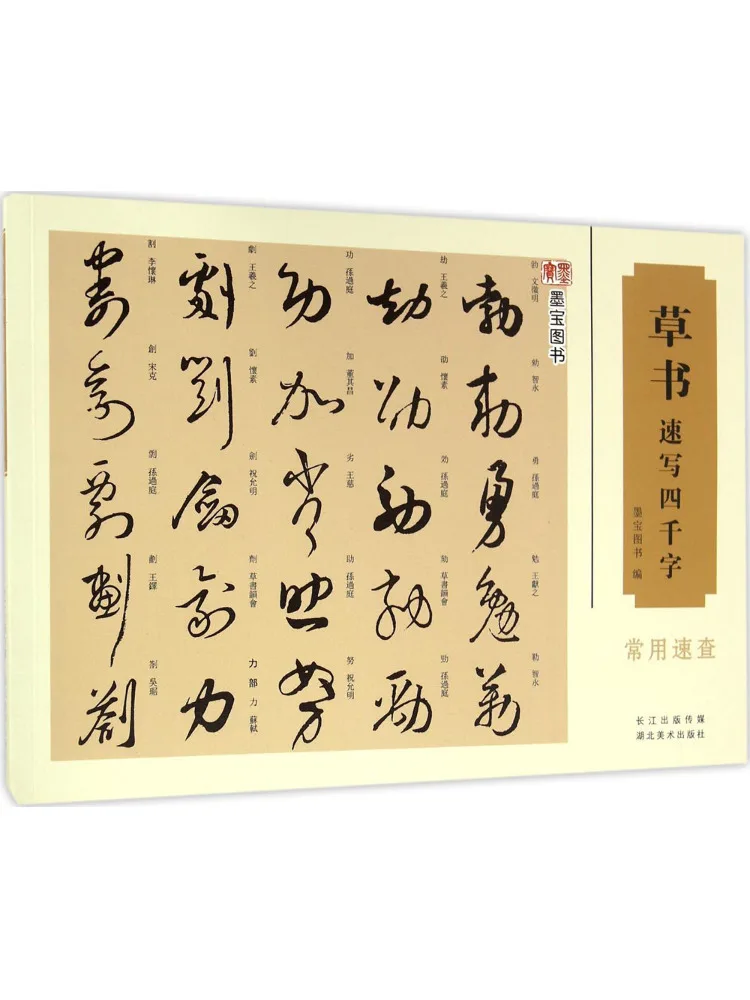 割 李懷琳
創 宋克
剽 孫過庭
劃 王鐸
劄 吳琚
劇 王羲之
劉 懷素
劍 祝允明
劑 草書韻會
力部 力 蘇軾
功 孫過庭
加 董其昌
劣 王慈
助 孫過庭
努 祝允明
劫 王羲之
効 孫過庭
勁 孫過庭
勃 文徵明
勅 智永
勇 孫過庭
勉 王獻之
勒 智永
墨寶
墨宝图书
草书
速写四千字
墨宝图书 编
常用速查
长江出版传媒
湖北美术出版社